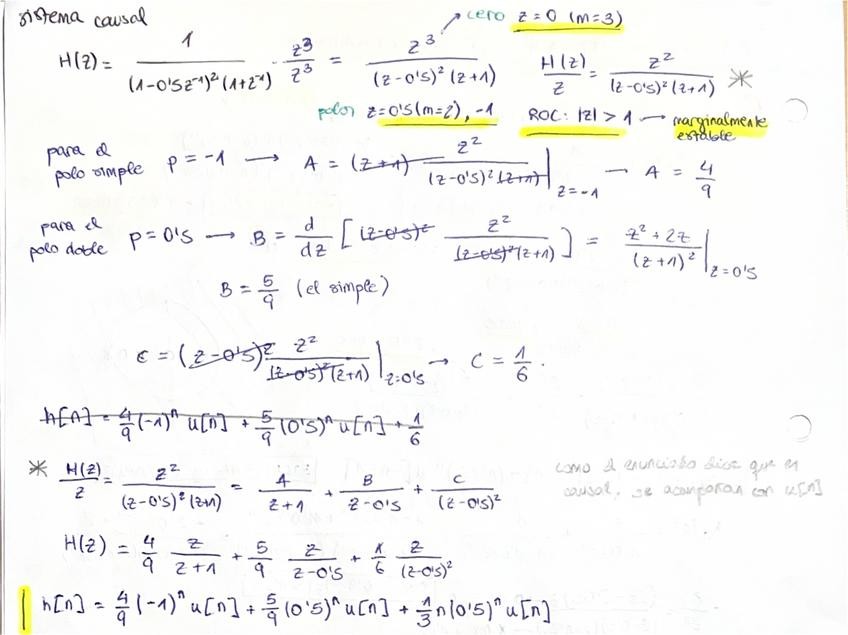 sistema causal
H(z) = 1 / ((1-0'5z⁻¹)² (1+z⁻¹)) · z³/z³ = z³ / ((z-0'5)² (z+1)) → cero z=0 (m=3)
H(z)/z = z² / ((z-0'5)² (z+1)) *
polos z=0'5 (m=2), -1 ROC: |z| > 1 → marginalmente estable
para el polo simple p = -1 → A = (z+1) z² / ((z-0'5)² (z+1)) |z=-1 → A = 4/9
para el polo doble p = 0'5 → B = d/dz [ (z-0'5)² z² / ((z-0'5)² (z+1)) ] = (z² + 2z) / (z+1)² |z=0'5
B = 5/9 (el simple)
C = (z-0'5)² z² / ((z-0'5)² (z+1)) |z=0'5 → C = 1/6.
h[n] = 4/9 (-1)ⁿ u[n] + 5/9 (0'5)ⁿ u[n] + 1/6
* H(z)/z = z² / ((z-0'5)² (z+1)) = A/(z+1) + B/(z-0'5) + C/(z-0'5)²
como el enunciado dice que es
causal, se acompañan con u[n]
H(z) = 4/9 z/(z+1) + 5/9 z/(z-0'5) + 1/6 z/(z-0'5)²
h[n] = 4/9 (-1)ⁿ u[n] + 5/9 (0'5)ⁿ u[n] + 1/3 n (0'5)ⁿ u[n]